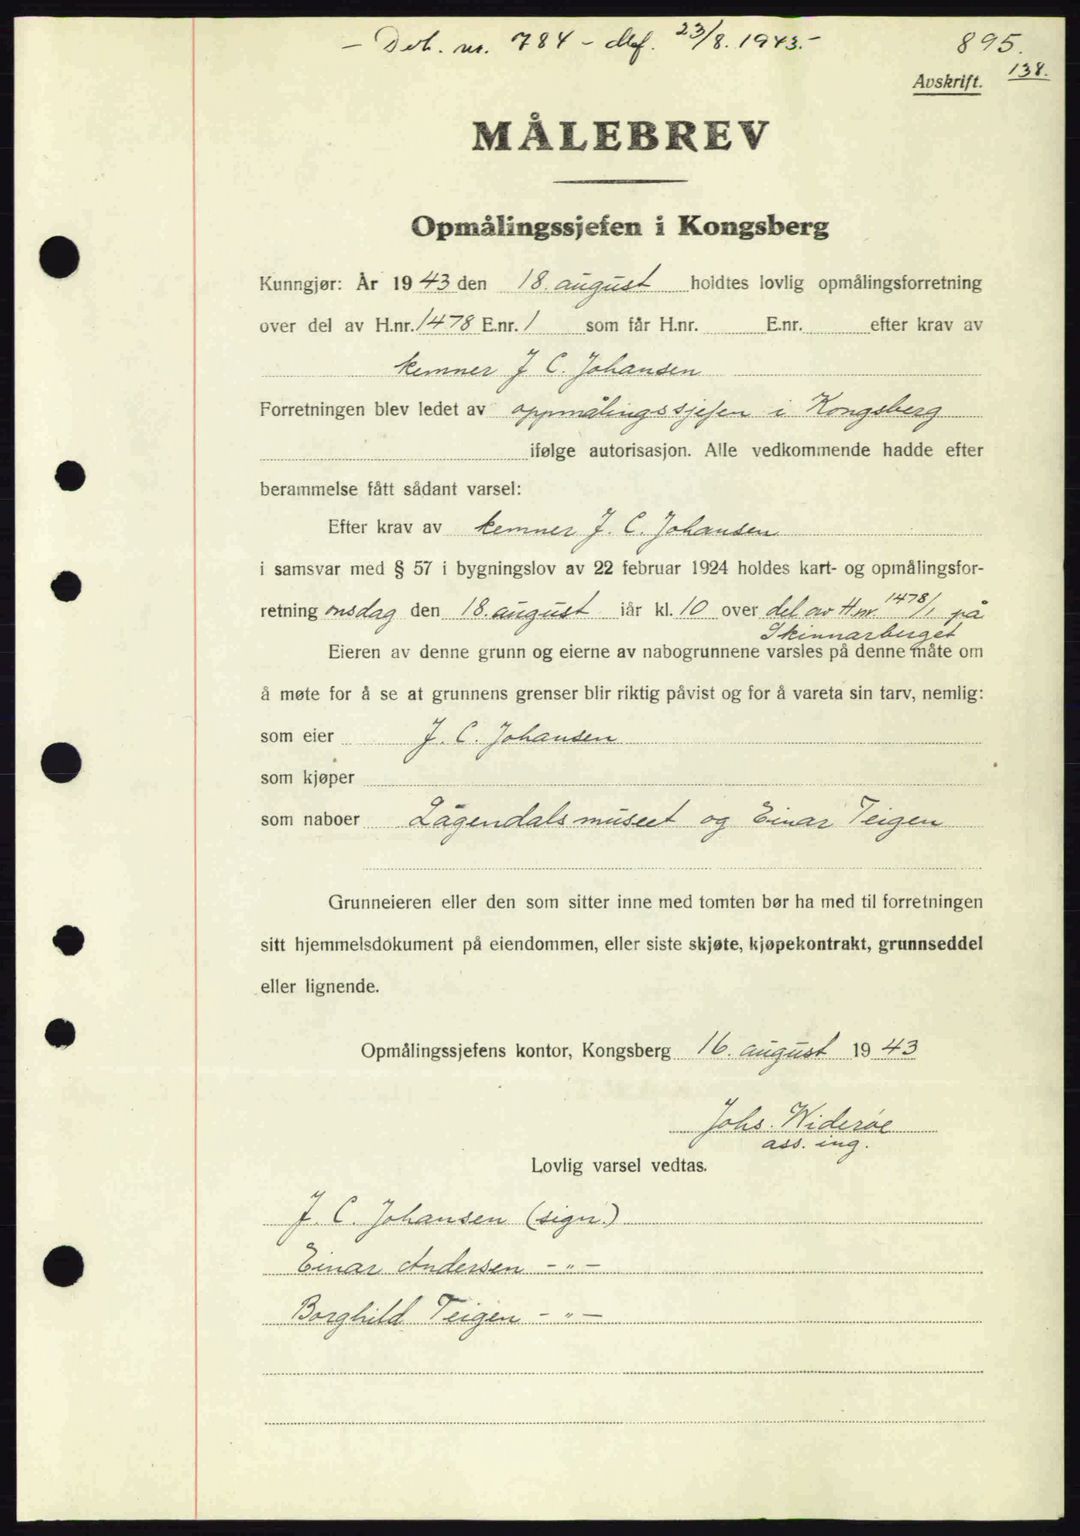 — Dok. nr. 784 – Mf. 23/8. 1943.-
895.
138.
Avskrift.
MÅLEBREV
Opmålingssjefen i Kongsberg
Kunngjør: År 1943 den 18. august holdtes lovlig opmålingsforretning
over del av H.nr. 1478 E.nr. 1 som får H.nr. E.nr. efter krav av
kemner J. C. Johansen
Forretningen blev ledet av oppmålingssjefen i Kongsberg
ifølge autorisasjon. Alle vedkommende hadde efter
berammelse fått sådant varsel:
Efter krav av kemner J. C. Johansen
i samsvar med § 57 i bygningslov av 22 februar 1924 holdes kart- og opmålingsfor-
retning onsdag den 18. august iår kl. 10 over del av H.nr. 1478/1 på
Skinnarberget
Eieren av denne grunn og eierne av nabogrunnene varsles på denne måte om
å møte for å se at grunnens grenser blir riktig påvist og for å vareta sin tarv, nemlig:
som eier J. C. Johansen
som kjøper
som naboer Lågendalsmuseet og Einar Teigen
Grunneieren eller den som sitter inne med tomten bør ha med til forretningen
sitt hjemmelsdokument på eiendommen, eller siste skjøte, kjøpekontrakt, grunnseddel
eller lignende.
Opmålingssjefens kontor, Kongsberg 16. august 1943
Johs. Widerøe
ass. ing.
Lovlig varsel vedtas.
J. C. Johansen (sign.)
Einar Andersen – „ –
Borghild Teigen – „ –